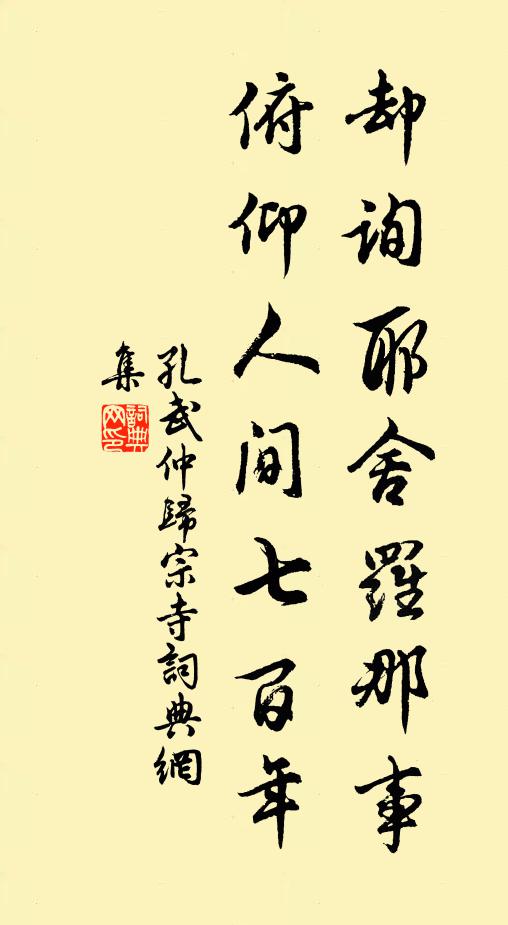 却詢耶舍羅那事
俯仰人間七百年
孔武仲歸宗寺詞典網
集
詞典
网印